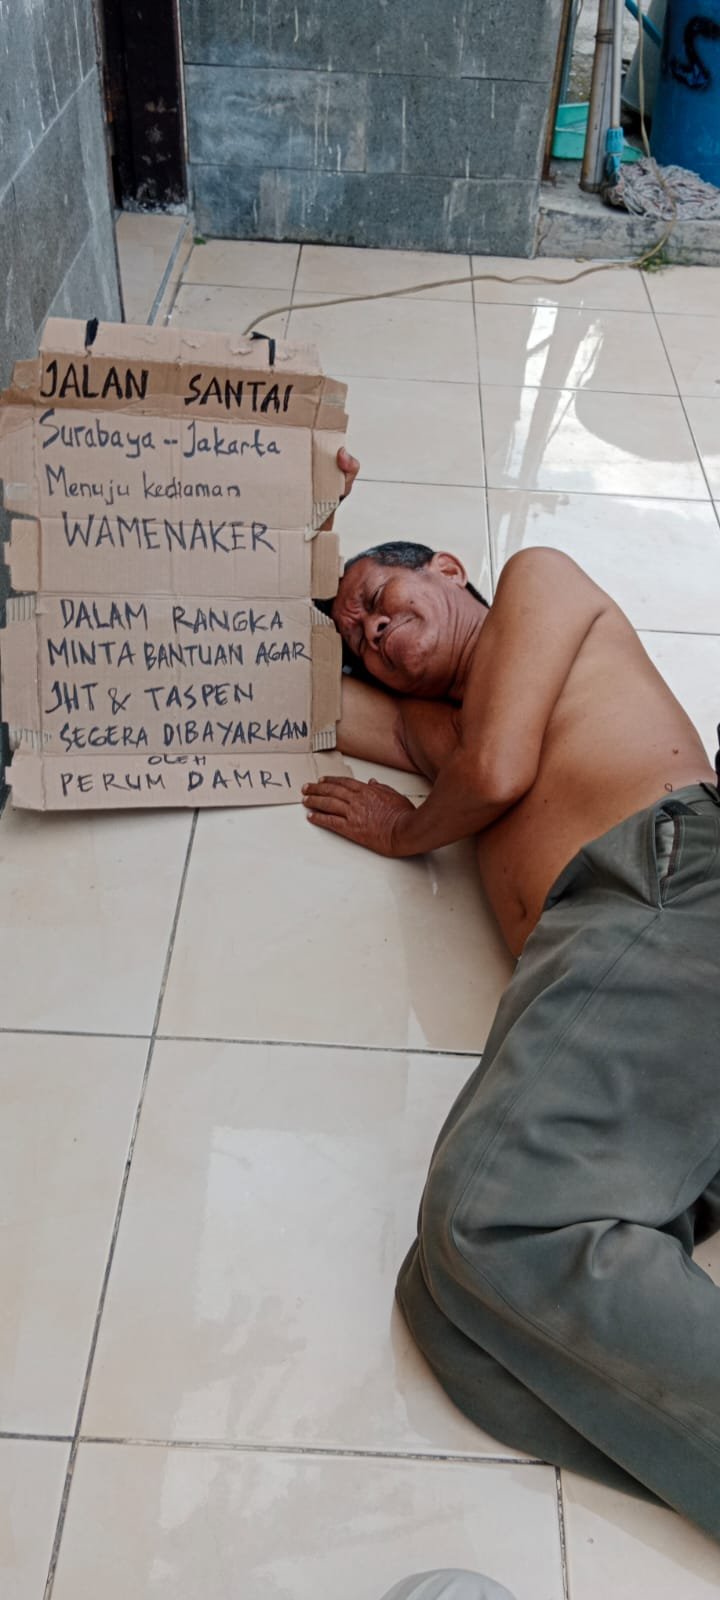 JALAN SANTAI
Surabaya - Jakarta
Menuju kediaman
WAMENAKER
DALAM RANGKA
MINTA BANTUAN AGAR
JHT & TASPEN
SEGERA DIBAYARKAN
OLEH
PERUM DAMRI